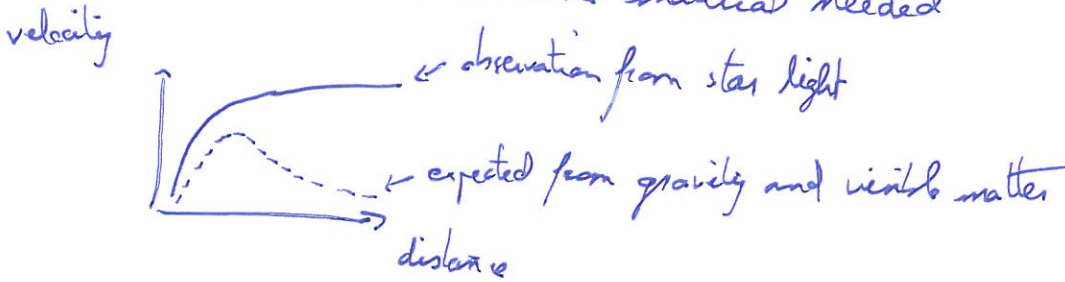 material needed
velocity
← observation from star light
← expected from gravity and visible matter
distance